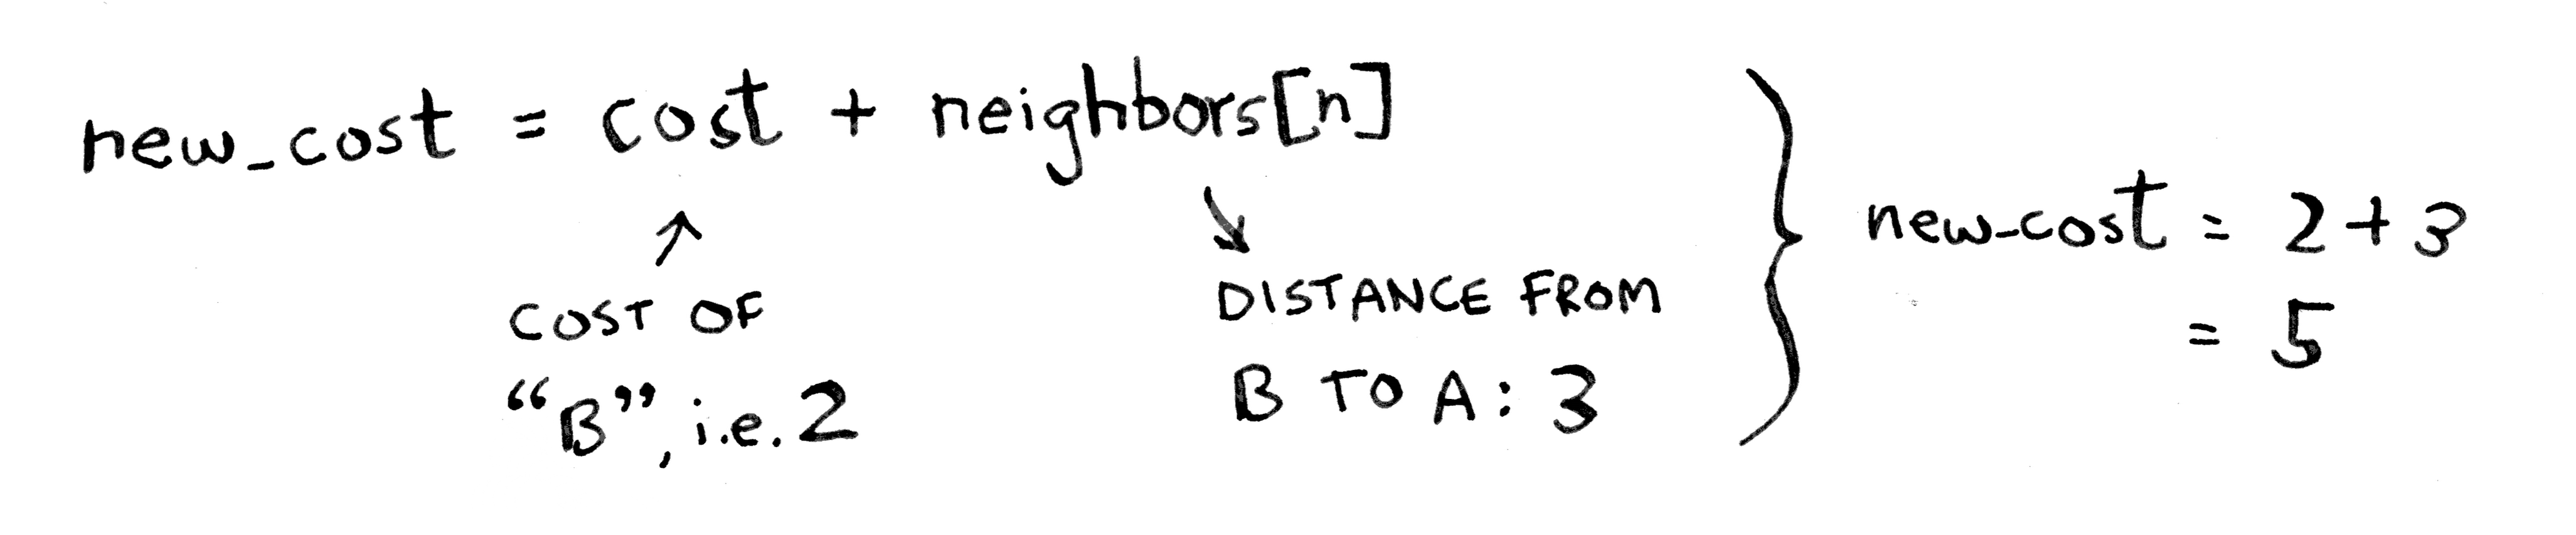 new_cost = cost + neighbors[n]
COST OF
“B”, i.e. 2
DISTANCE FROM
B TO A: 3
new_cost = 2+3
= 5